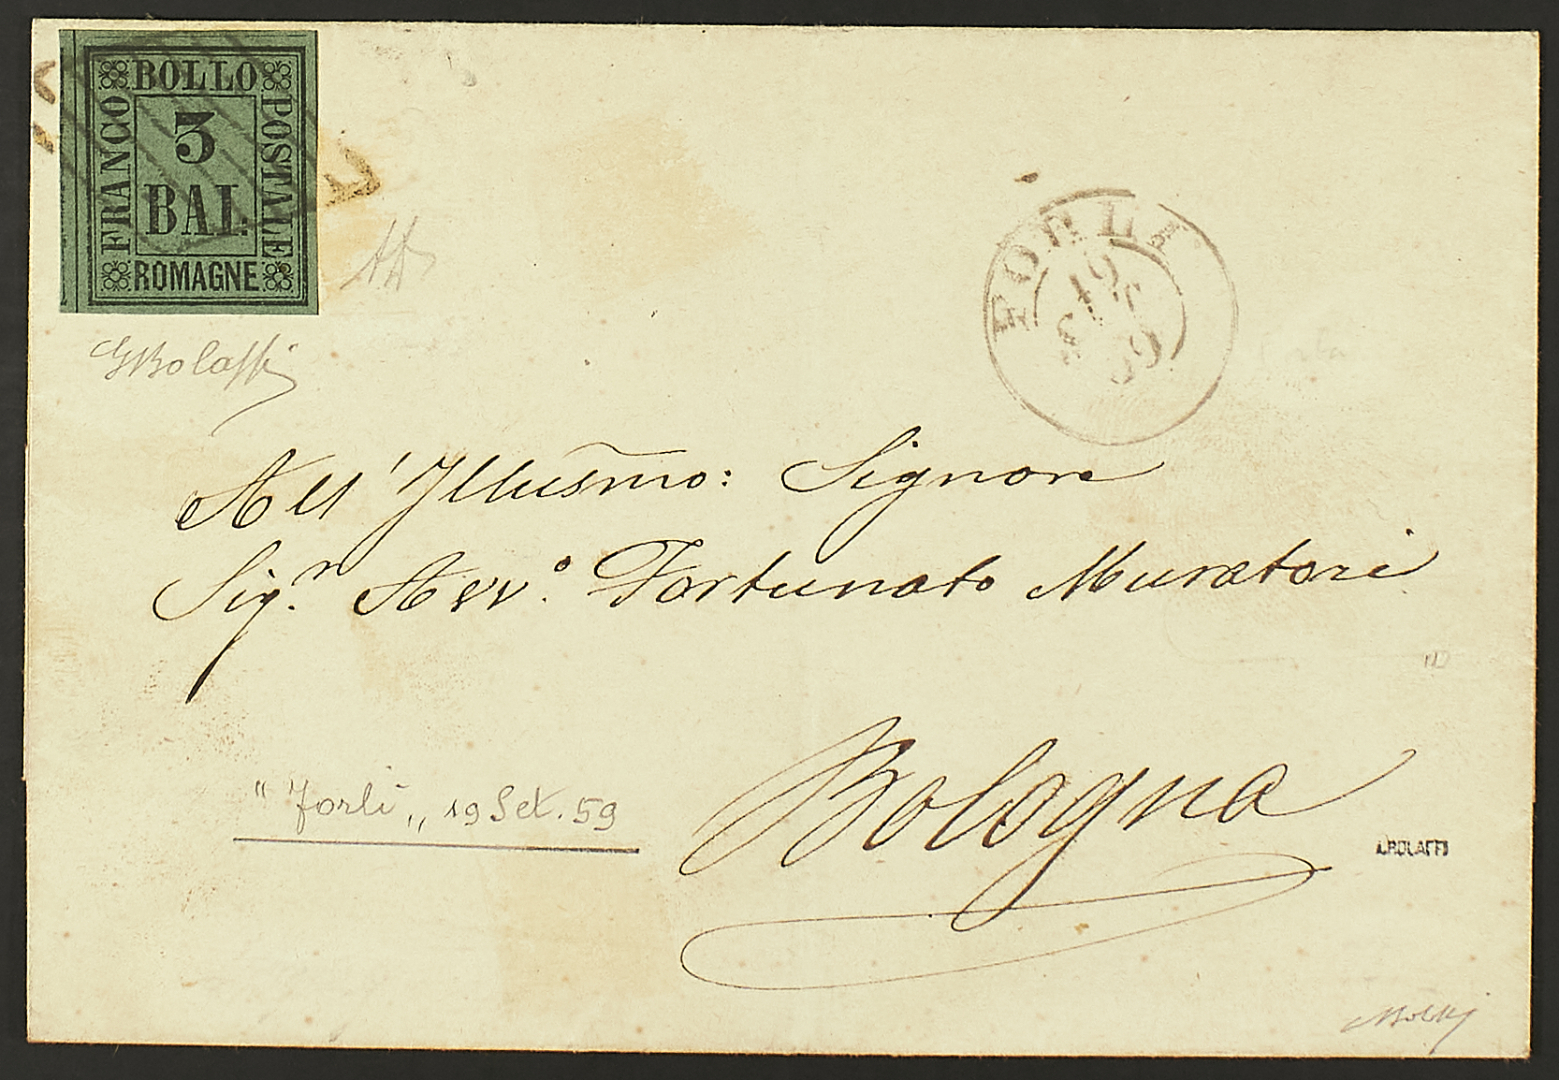 BOLLO
FRANCO
3
BAI.
POSTALE
ROMAGNE
GBolaffi
FORLI
19
59
All' Illusmo: Signore
Sig.r Avv.o Fortunato Muratori
Bologna
"Forlì„ 19 Set. 59
A.BOLAFFI